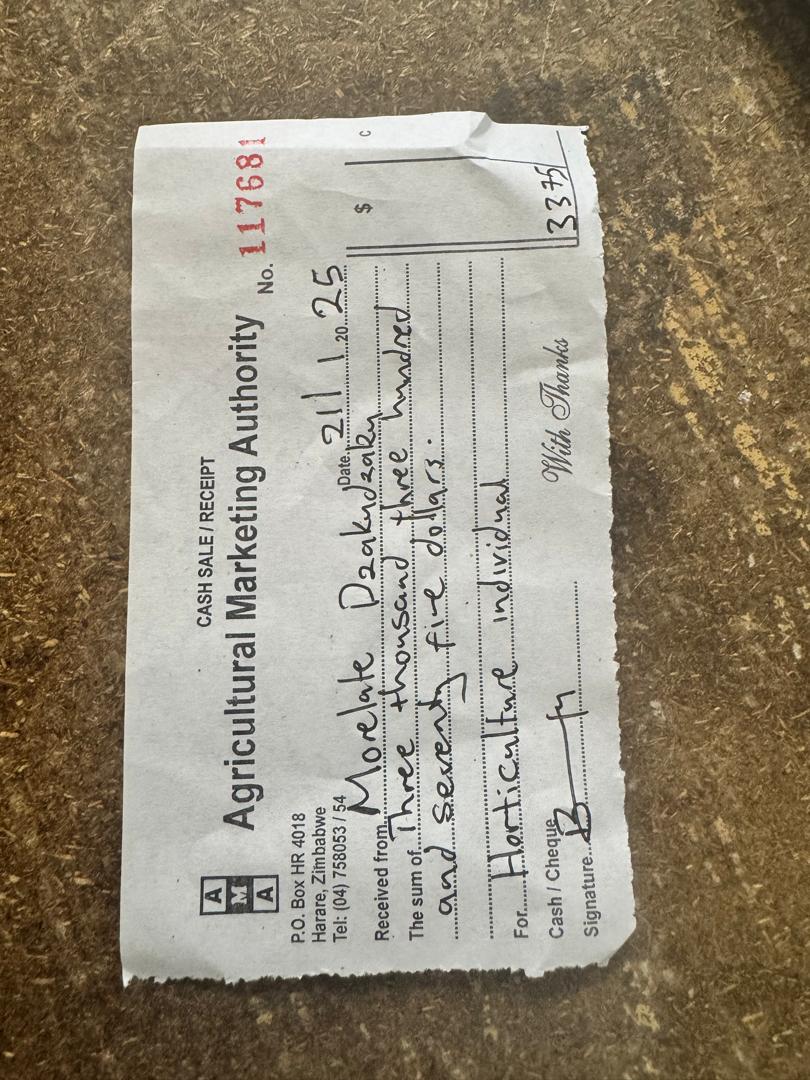 CASH SALE / RECEIPT
AMA
Agricultural Marketing Authority
No. 117681
P.O. Box HR 4018
Harare, Zimbabwe
Tel: (04) 758053 / 54
Date. 21/1 20 25
Received from Morelate Dzakudzaku
The sum of Three thousand three hundred
and seventy five dollars.
For Horticulture individual
$ C
3375
Cash / Cheque
Signature
With Thanks